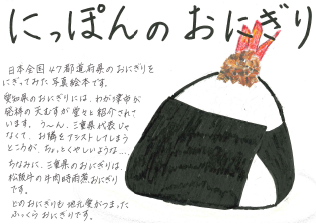 にっぽんの おにぎり
日本全国47都道府県のおにぎりを
にぎってみた写真絵本です。
愛知県のおにぎりには、わが津市が
発祥の天むすが堂々と紹介されて
います。う～ん、三重県代表じゃ
なくて、お隣をアシストしてしまう
ところが、ちょっとくやしいような…
ちなみに、三重県のおにぎりは、
松阪牛の牛肉時雨煮おにぎり
です。
どのおにぎりも地元愛がつまった
ふっくらおにぎりです。